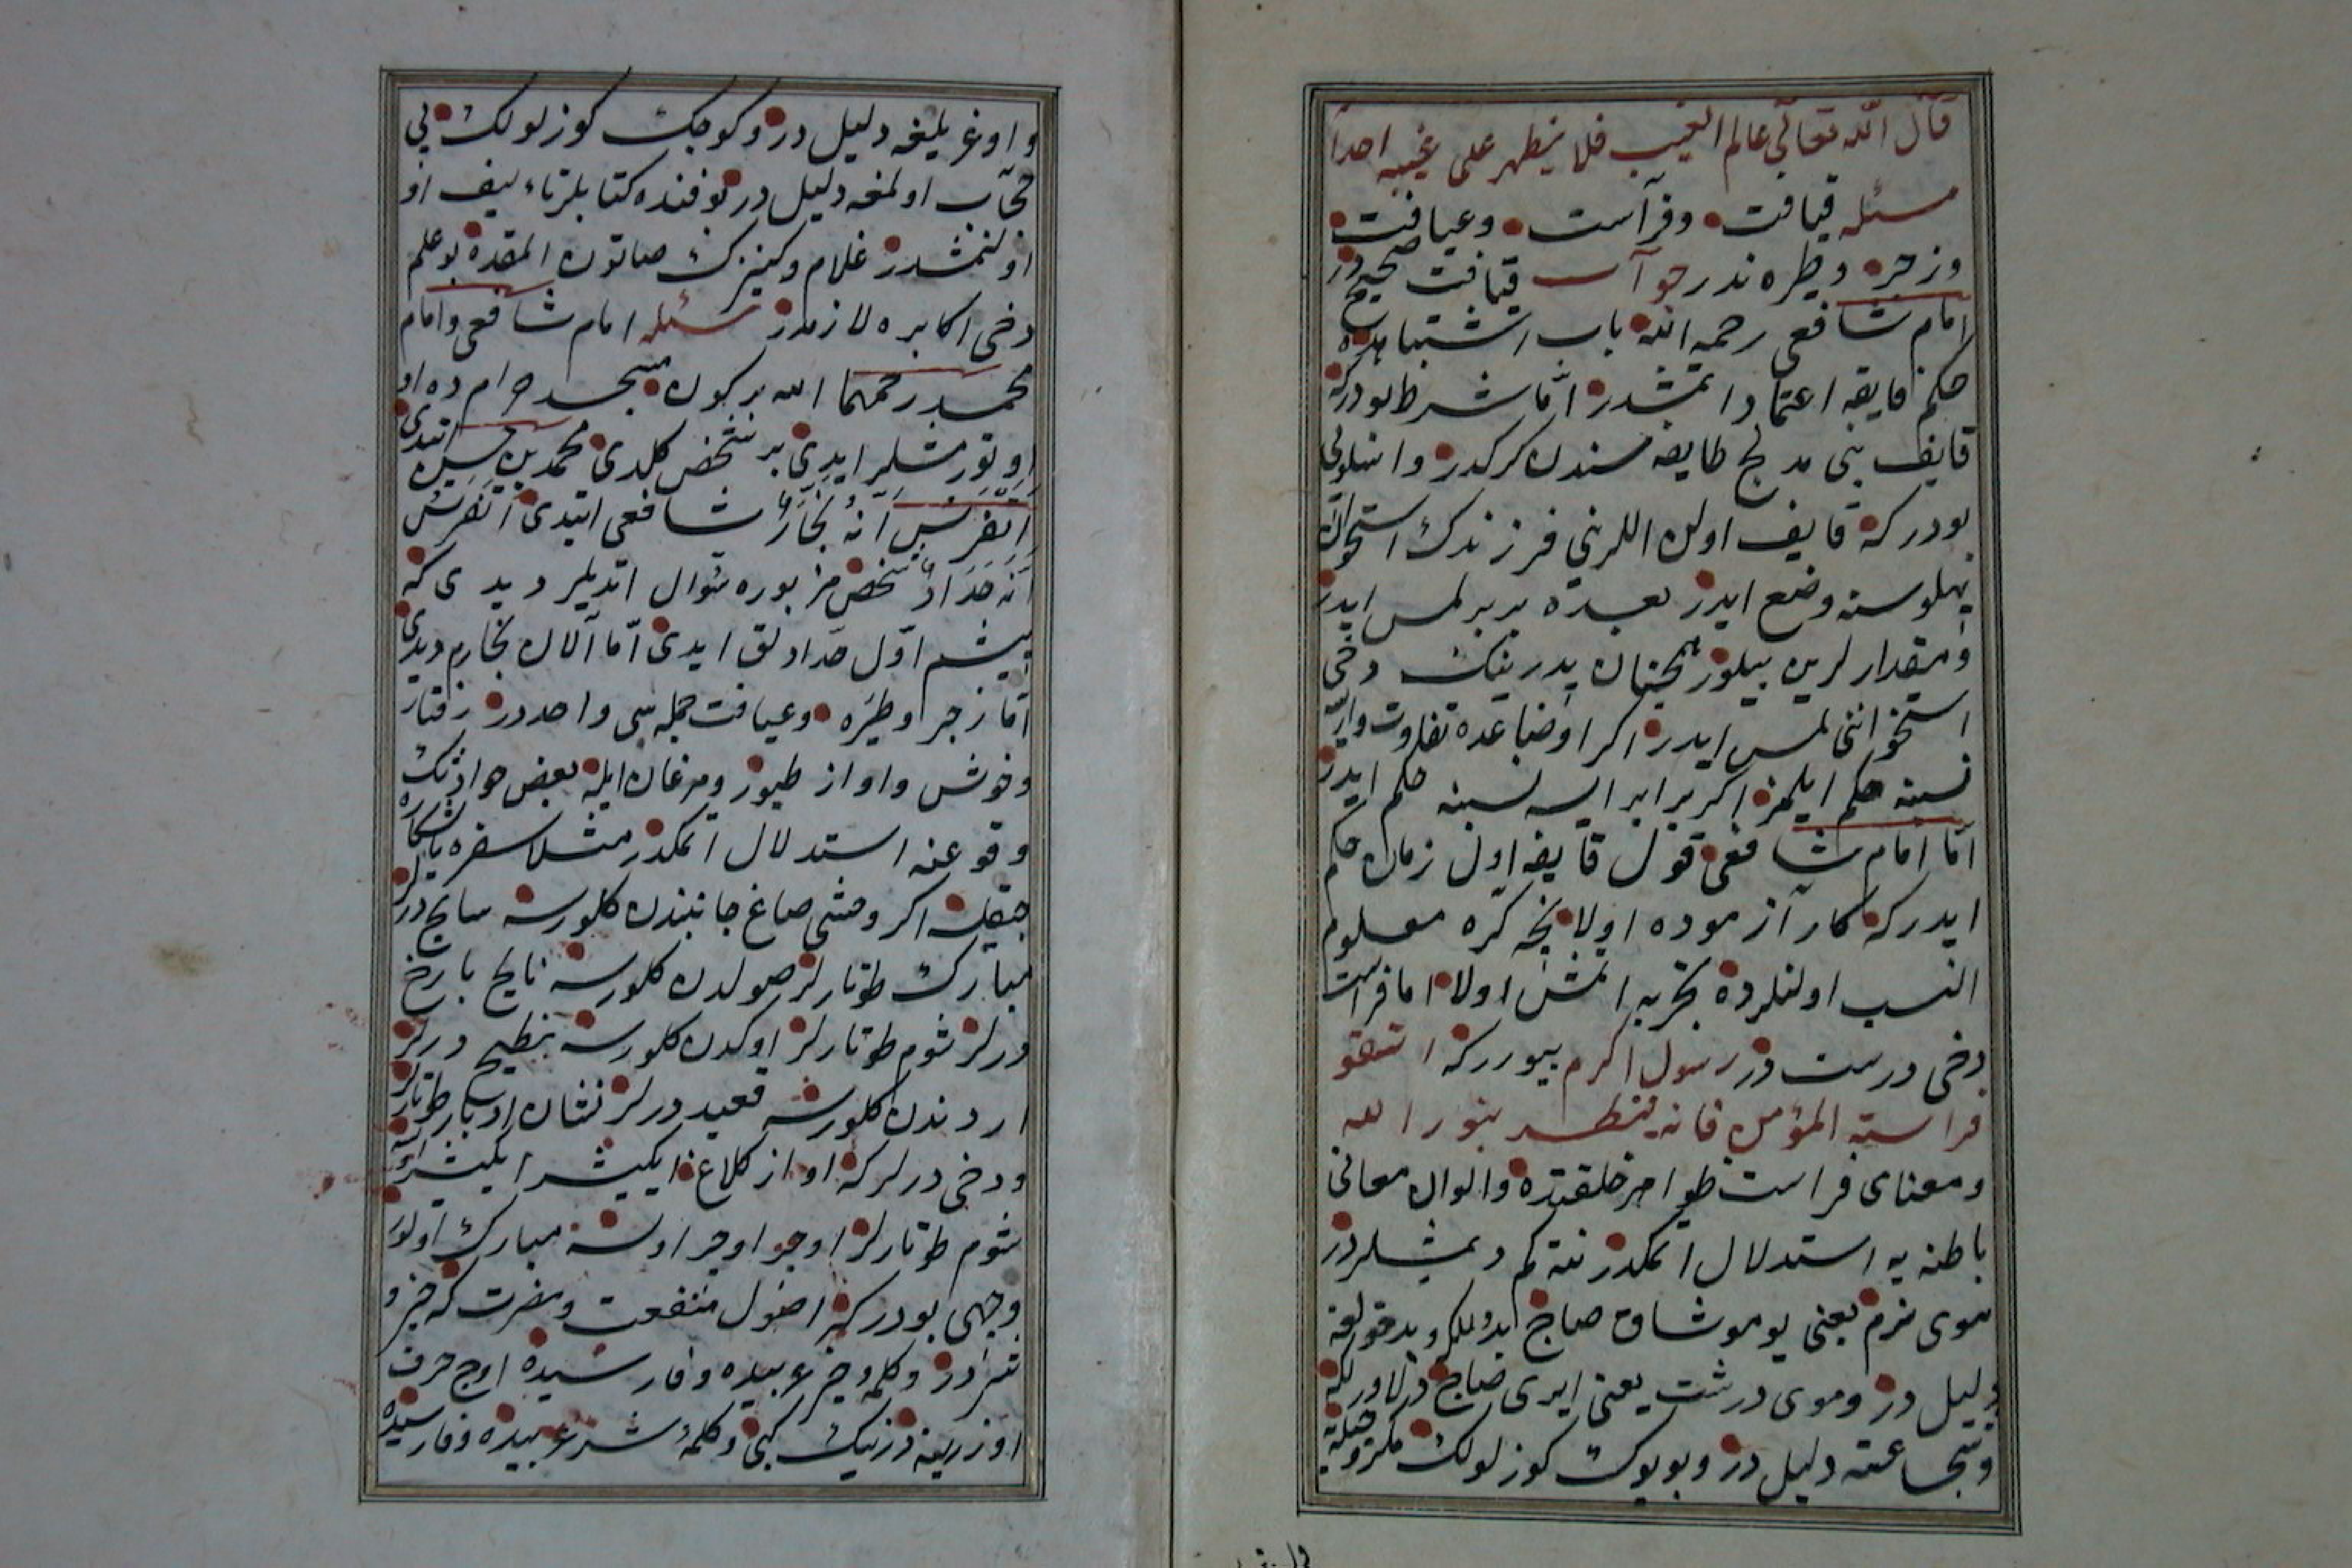 قال الله تعالى عالم الغيب فلا يظهر على غيبه احدا
مسئله قيافت وفرآست وعيافت
وزجر وطيره ندر جوآب قيافت صحيحدر
امام شافعى رحمه الله باب اشتباهده
حكم قايفه اعتماد اتمشدر امّا شرط بودركه
قايف بنى مدلج طايفه سندن كركدر واسلوبى
بودركه قايف اولن اللرينى فرزندك استخوان
پهلوسنه وضع ايدر بعده بربر لمس ايدر
ومقدارلرين بيلور همچنان پدرينك دخى
استخواننى لمس ايدر اكر اوضاعده تفاوت وار
نسبنه حكم ايلمز اكر برابر ايسه نسبنه حكم ايدر
امّا امام شافعى قول قايفه اول زمان حكم
ايدركه كار آزموده اولا نچه كره معلوم
النسب اولنلرده تجربه اتمش اولا اما فراست
دخى درست در رسول اكرم بيورركه اتقو
فراسة المؤمن فانه ينظر بنور الله
ومعناى فراست ظواهر خلقتده والوان معانى
باطنه يه استدلال اتمكدر نته كم ديمشلردر
موى نرم يعنى يوموشاق صاچ
دليل در وموى درشت يعنى ايرى صاچ دلاورلكه
وشجاعته دليل در وبويوك كوزلولك مكر وحيله
واوغريلغه دليل در وكوچك كوزلولك بى
حجاب اولمغه دليل در بو فنده كتابلر تاءليف
اولنمشدر غلام وكنيزك صاتون المقده بو علم
دخى اكابره لازمدر مسئله امام شافعى وامام
محمد رحمهما الله بر كون مسجد حرامده
اوتورمشلر ايدى بر شخص كلدى محمد بن حسن ايتدى
اتفرس انه نجار شافعى ايتدى اتفرس
انه حداد شخص مزبوره سؤال اتديلر ديدى كه
پيشم اوّل حدادلق ايدى امّا الان نجارم ديدى
امّا زجر وطيره وعيافت جمله سى واحددر رفتار
وخوش واواز طيور ومرغان ايله بعض حوادثك
وقوعنه استدلال اتمكدر مثلا سفره يا شكاره
چيقلسه اكر وحشى صاغ جانبندن كلورسه سانح درلر
مبارك طوتارلر صولدن كلورسه بارح
درلر شوم طوتارلر اوكدن كلورسه نطيح درلر
اردندن كلورسه قعيد درلر نشان ادبار طوتارلر
ودخى درلركه اواز كلاغ ايكيشر ايكيشر اولسه
شوم طوتارلر اوچر اوچر اولسه مبارك اولور
وجهى بودركه اصول منفعت ومضرت كه خير و
شر در وكلمه خير عربيده وفارسيده اوچ حرف
اوزرينه در نيك كبى وكلمه شر عربيده وفارسيده